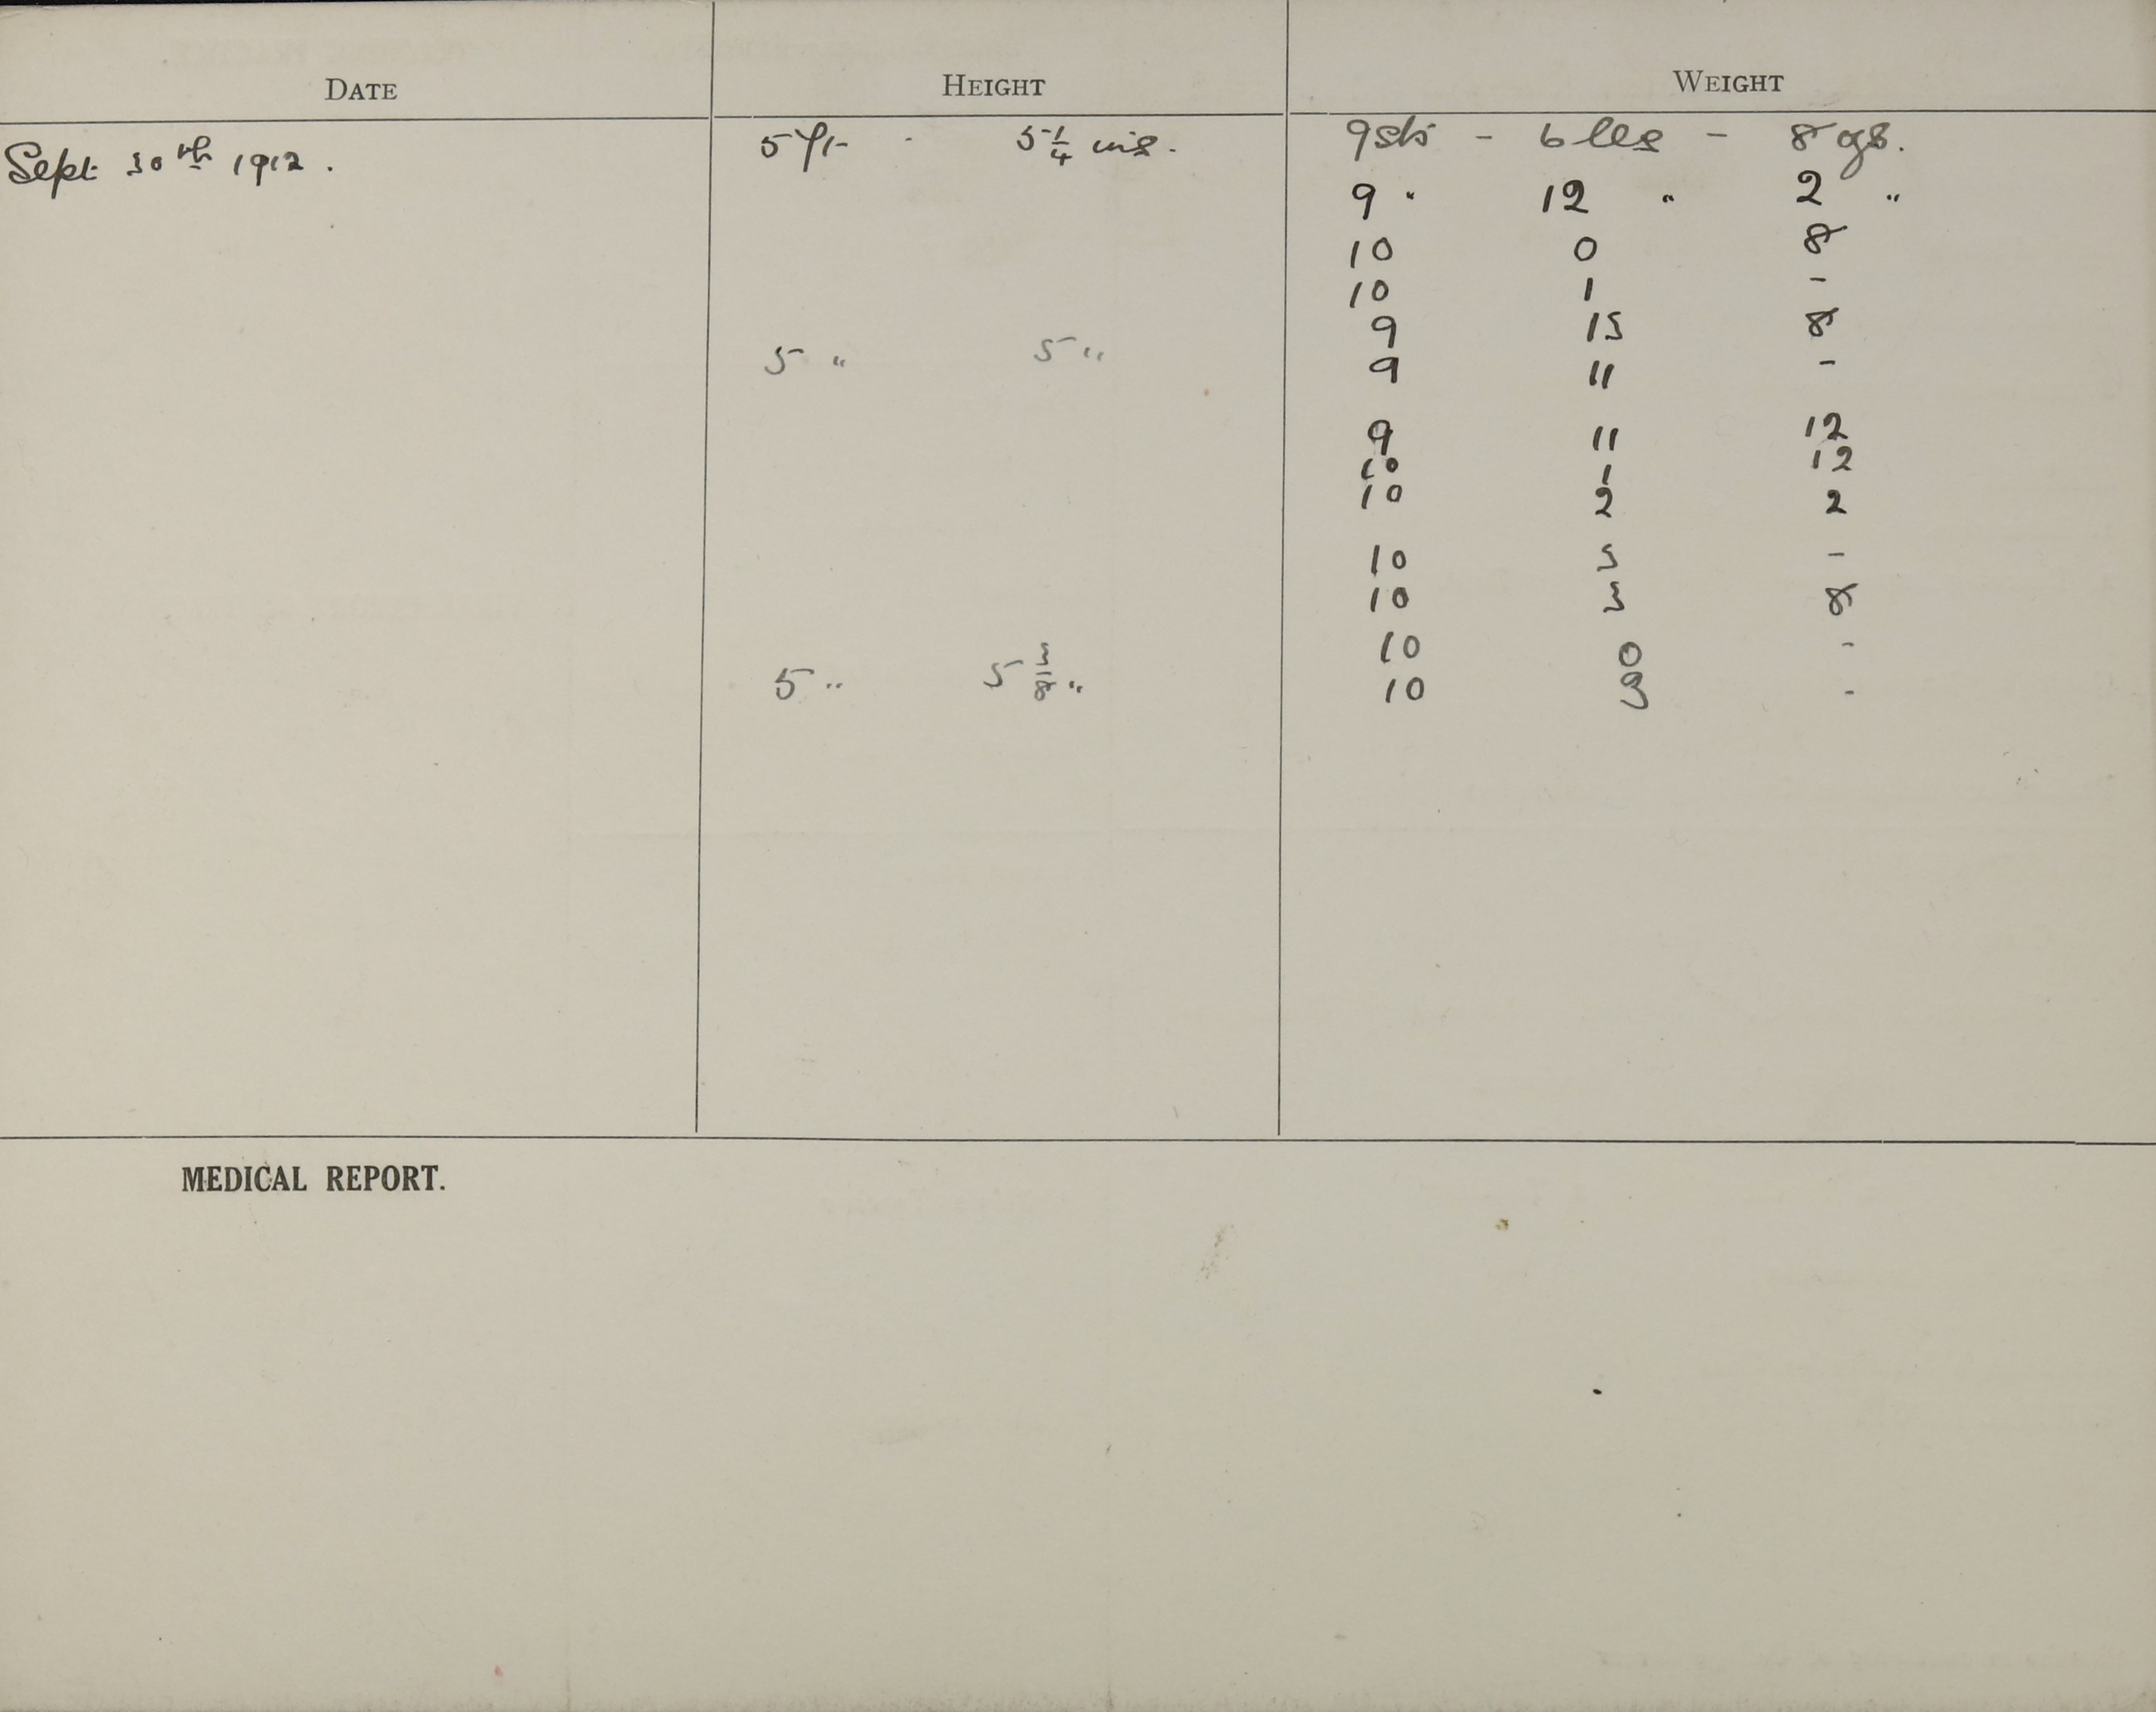 DATE HEIGHT WEIGHT
Sept. 30th 1912. 5 ft - 5 1/4 ins. 9 sts - 6 lbs - 8 ozs.
9 " 12 " 2 "
10 0 8
10 1 -
9 13 8
5 " 5 " 9 11 -
9 11 12
10 1 12
10 2 2
10 3 -
10 3 8
10 0 -
5 " 5 3/8 " 10 3 -
MEDICAL REPORT.